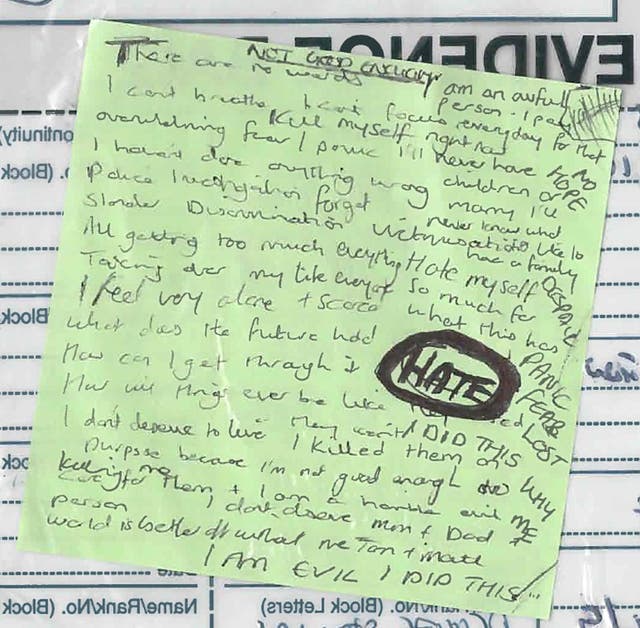 EVIDENCE
NOT GOOD ENOUGH
There are no words
am an awful person. I pay
I can't breathe I can't focus everyday for that
Kill myself right now
overwhelming fear / panic I'll never have HOPE NO
children or marry I'll
I haven't done anything wrong
never know what
Police Investigation forget like to
Slander Discrimination Victimisation have a family
All getting too much everything Hate myself DESPAIR
Taking over my life everyday So much for
what this has
I feel very alone + scared
what does the future hold PANIC
How can I get through it HATE FEAR
How will things ever be like LOST
they won't I DID THIS
I don't deserve to live I killed them on WHY
purpose because I'm not good enough to ME
care for them + I am a horrible evil
killing me
person I don't deserve mum + Dad
world is better off without me
I AM EVIL I DID THIS
Continuity)
(Block
Block
Name/Rank/No. (Block
Name/Rank/No. (Block Letters)